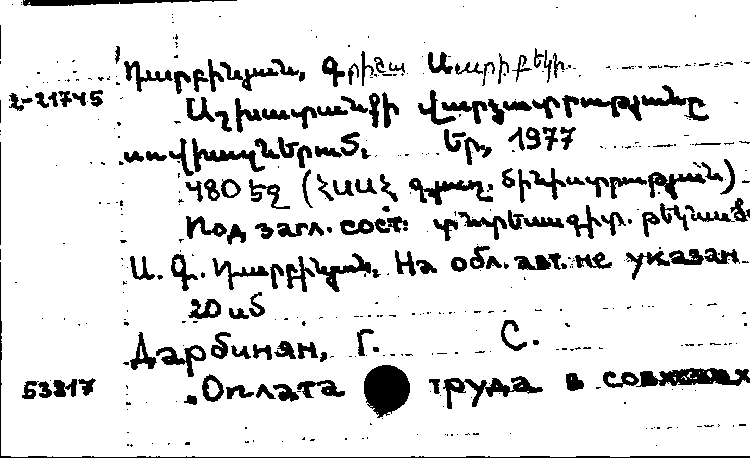 Դարբինյան, Գրիշա Սարիբեկի.
2-21745
Աշխատանքի վարձատրությունը
սովխոզներում. Եր., 1977
480 էջ (ՀՍՍՀ գյուղ. մինիստրության)
Под загл. сост: տնտեսագիտ. թեկնածու
Ս. Գ. Դարբինյան. На обл. авт. не указан
20 սմ
Дарбинян, Г. С.
53817 Оплата труда в совхозах